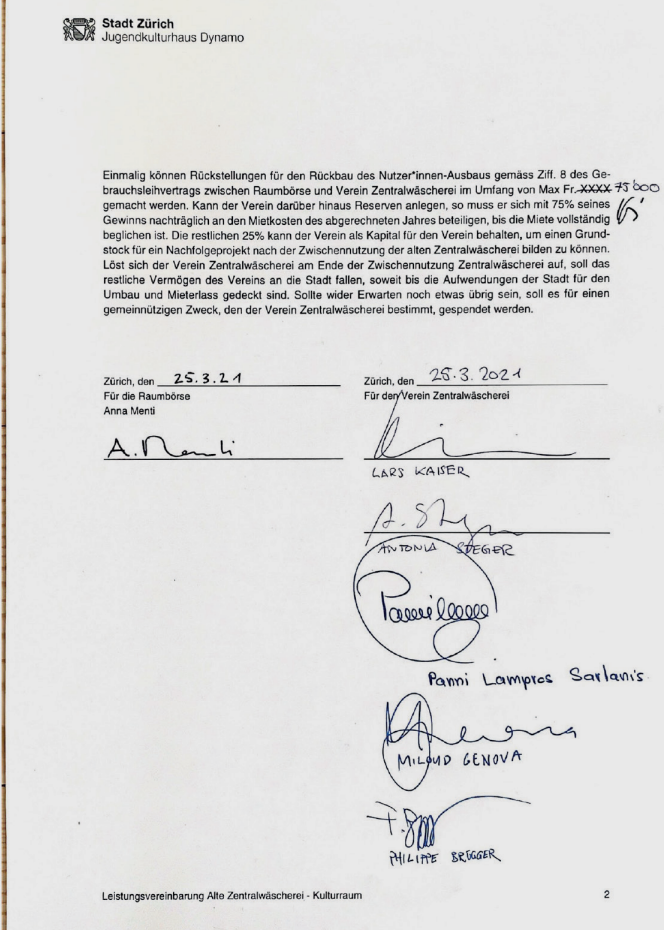 Stadt Zürich
Jugendkulturhaus Dynamo
Einmalig können Rückstellungen für den Rückbau des Nutzer*innen-Ausbaus gemäss Ziff. 8 des Ge-
brauchsleihvertrags zwischen Raumbörse und Verein Zentralwäscherei im Umfang von Max Fr. XXXX 75'000
gemacht werden. Kann der Verein darüber hinaus Reserven anlegen, so muss er sich mit 75% seines
Gewinns nachträglich an den Mietkosten des abgerechneten Jahres beteiligen, bis die Miete vollständig
beglichen ist. Die restlichen 25% kann der Verein als Kapital für den Verein behalten, um einen Grund-
stock für ein Nachfolgeprojekt nach der Zwischennutzung der alten Zentralwäscherei bilden zu können.
Löst sich der Verein Zentralwäscherei am Ende der Zwischennutzung Zentralwäscherei auf, soll das
restliche Vermögen des Vereins an die Stadt fallen, soweit bis die Aufwendungen der Stadt für den
Umbau und Mieterlass gedeckt sind. Sollte wider Erwarten noch etwas übrig sein, soll es für einen
gemeinnützigen Zweck, den der Verein Zentralwäscherei bestimmt, gespendet werden.
Zürich, den 25.3.21
Für die Raumbörse
Anna Menti
A. Menti
Zürich, den 25.3.2021
Für den Verein Zentralwäscherei
LARS KAISER
ANTONIA STEGER
Panni Lampros Sarlanis
MILOUD GENOVA
PHILIPPE BRÜGGER
Leistungsvereinbarung Alte Zentralwäscherei - Kulturraum 2